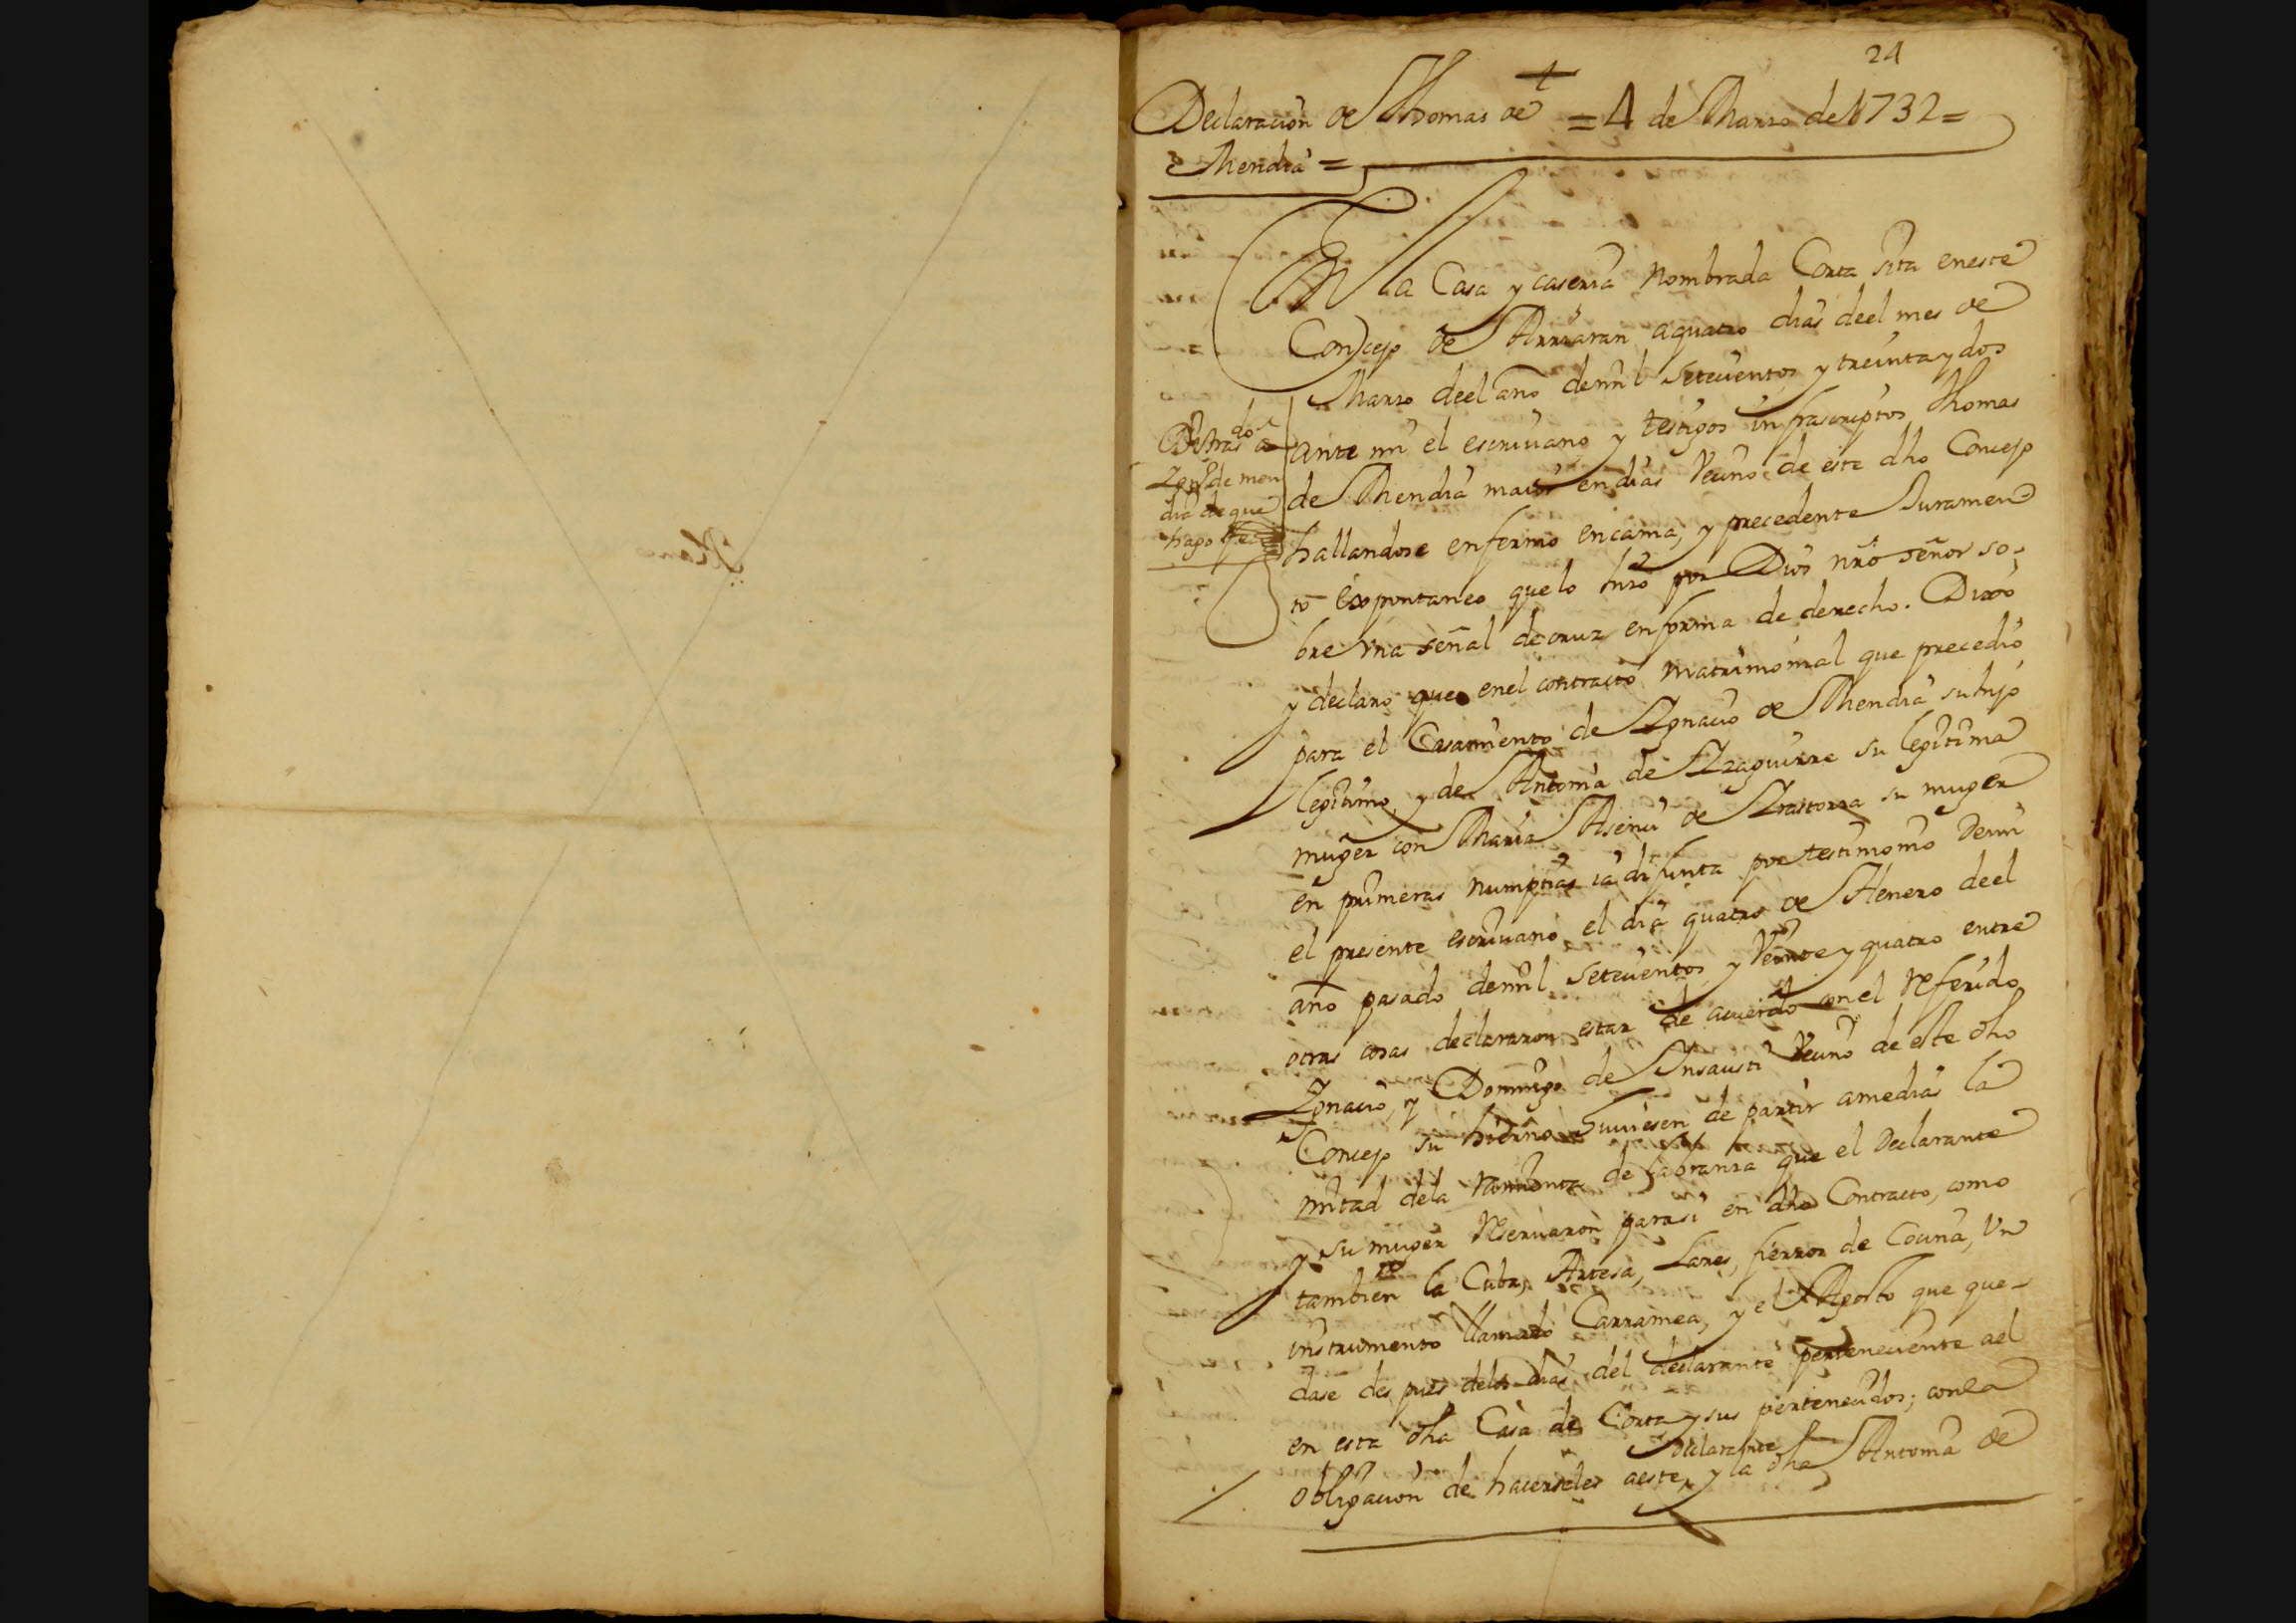 24
Declaracion de Thomas de = 4 de Marzo de 1732 =
Mendia =
En la Casa y caseria Nombrada Corta sita eneste
Concejo de Arriaran aquatro dias deel mes de
Marzo deel año demil setecientos y treinta y dos
ante mi el escrivano y testigos infrascriptos Thomas
de Mendia maior endias Vecino de este dho Concejo
hallandose enfermo encama, y precedente Juramen
to Expontaneo quelo hizo por Dios nrõ señor so-
bre Vna señal decruz enforma de derecho. Dixo
y declaro que enel contracto matrimonial que precedio
para el Casamiento de Ignacio de Mendia su hijo
legitimo, y de Antonia de Yzaguirre su legitima
muger con Maria Asencia de Yrastorza su muger
en primeras numptias ia difunta por testimonio demi
el presente escrivano el dia quatro de Henero deel
año pasado demil setecientos y Veinte y quatro entre
otras cosas declararon estar de acuerdo con el referido
Ignacio, y Domingo de Insausti Vecino de este dho
Concejo su hierno huviesen de partir amedias la
mitad dela de labranza que el Declarante
y su muger reservaron parasi en dho Contracto, como
tambien la Cuba, Artesa, Lares, fierros de Cocina, Vn
instrumento llamado Carramea, y el Agosto que que-
dase despues delos dias del declarante perteneciente ael
en esta dha Casa de Corta y sus pertenecidos; conla
Declarante
obligacion de hacerseles aeste, y la dha Antonia de
Ygn.º de men
dia de que
hago fee